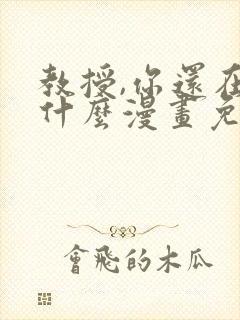 教授,你還在
什麼漫畫免
會飛的木瓜